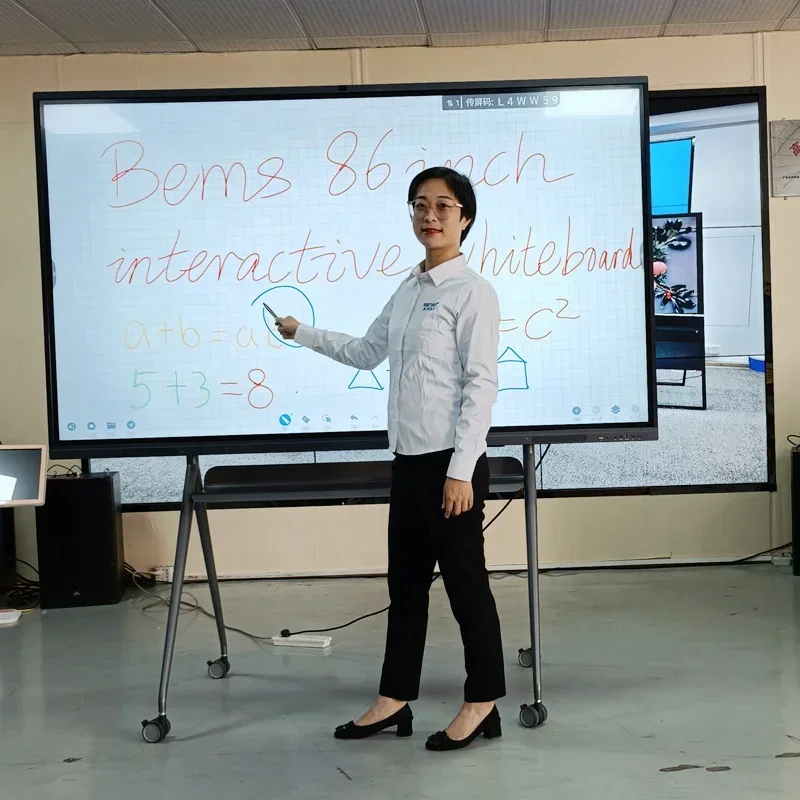 传屏码: L4WW59
Bems 86 inch
interactive whiteboard
a+b=a
=c²
5+3=8